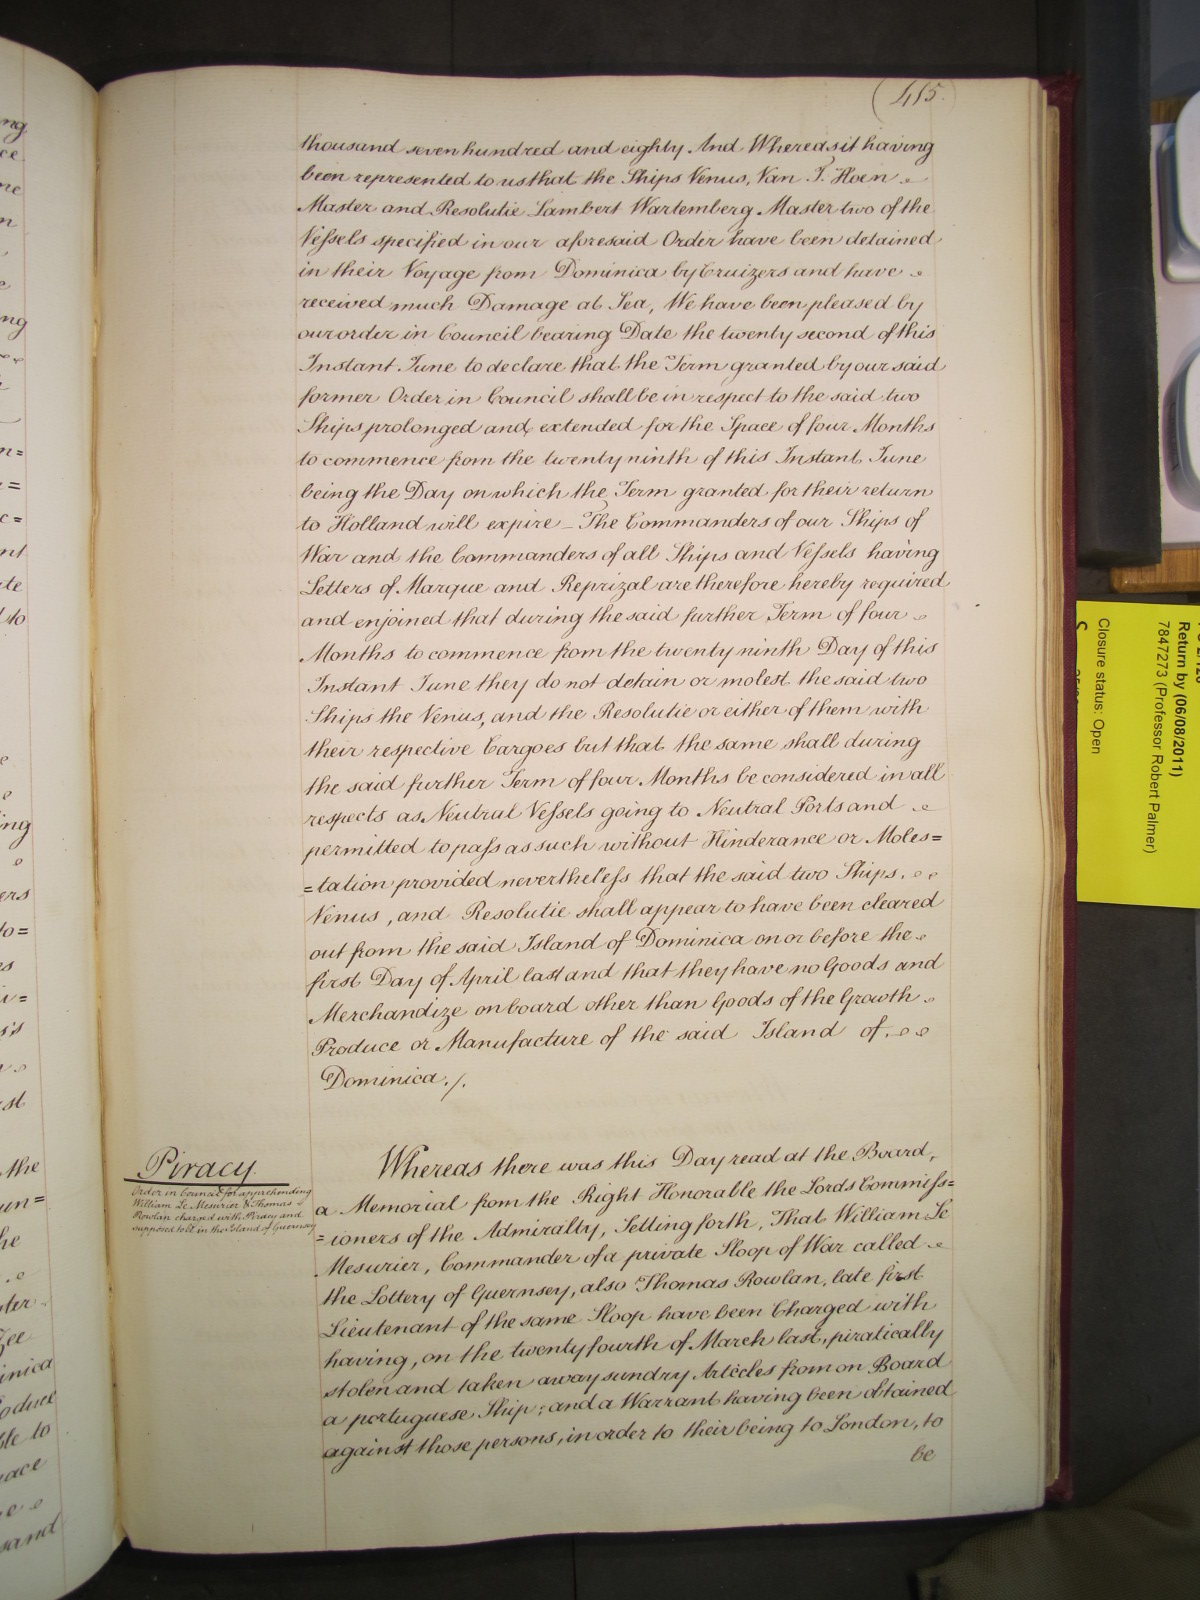 (415.
thousand seven hundred and eighty. And Whereas it having
been represented to us that the Ships Venus, Van T. Hoen
Master and Resolutie Lambert Wartemberg Master two of the
Vessels specified in our aforesaid Order have been detained
in their Voyage from Dominica by Cruizers and have
received much Damage at Sea, We have been pleased by
our order in Council bearing Date the twenty second of this
Instant June to declare that the Term granted by our said
former Order in Council shall be in respect to the said two
Ships prolonged and extended for the Space of four Months
to commence from the twenty ninth of this Instant June
being the Day on which the Term granted for their return
to Holland will expire – The Commanders of our Ships of
War and the Commanders of all Ships and Vessels having
Letters of Marque and Reprizal are therefore hereby required
and enjoined that during the said further Term of four
Months to commence from the twenty ninth Day of this
Instant June they do not detain or molest the said two
Ships the Venus, and the Resolutie or either of them with
their respective Cargoes but that the same shall during
the said further Term of four Months be considered in all
respects as Neutral Vessels going to Neutral Ports and
permitted to pass as such without Hinderance or Moles=
=tation provided nevertheless that the said two Ships,
Venus, and Resolutie shall appear to have been cleared
out from the said Island of Dominica on or before the
first Day of April last and that they have no Goods and
Merchandize on board other than Goods of the Growth
Produce or Manufacture of the said Island of
Dominica ./.
Piracy
Order in Council for apprehending
William Le Mesurier & Thomas
Rowlan charged with Piracy and
supposed to be in the Island of Guernsey
Whereas there was this Day read at the Board,
a Memorial from the Right Honorable the Lords Commiss=
=ioners of the Admiralty, Setting forth, That William Le
Mesurier, Commander of a private Sloop of War called
the Lottery of Guernsey, also Thomas Rowlan, late first
Lieutenant of the same Sloop have been Charged with
having, on the twenty fourth of March last, piratically
stolen and taken away sundry Articles from on Board
a portuguese Ship; and a Warrant having been obtained
against those persons, in order to their being to London, to
be
Return by (06/08/2011)
7847273 (Professor Robert Palmer)
Closure status: Open